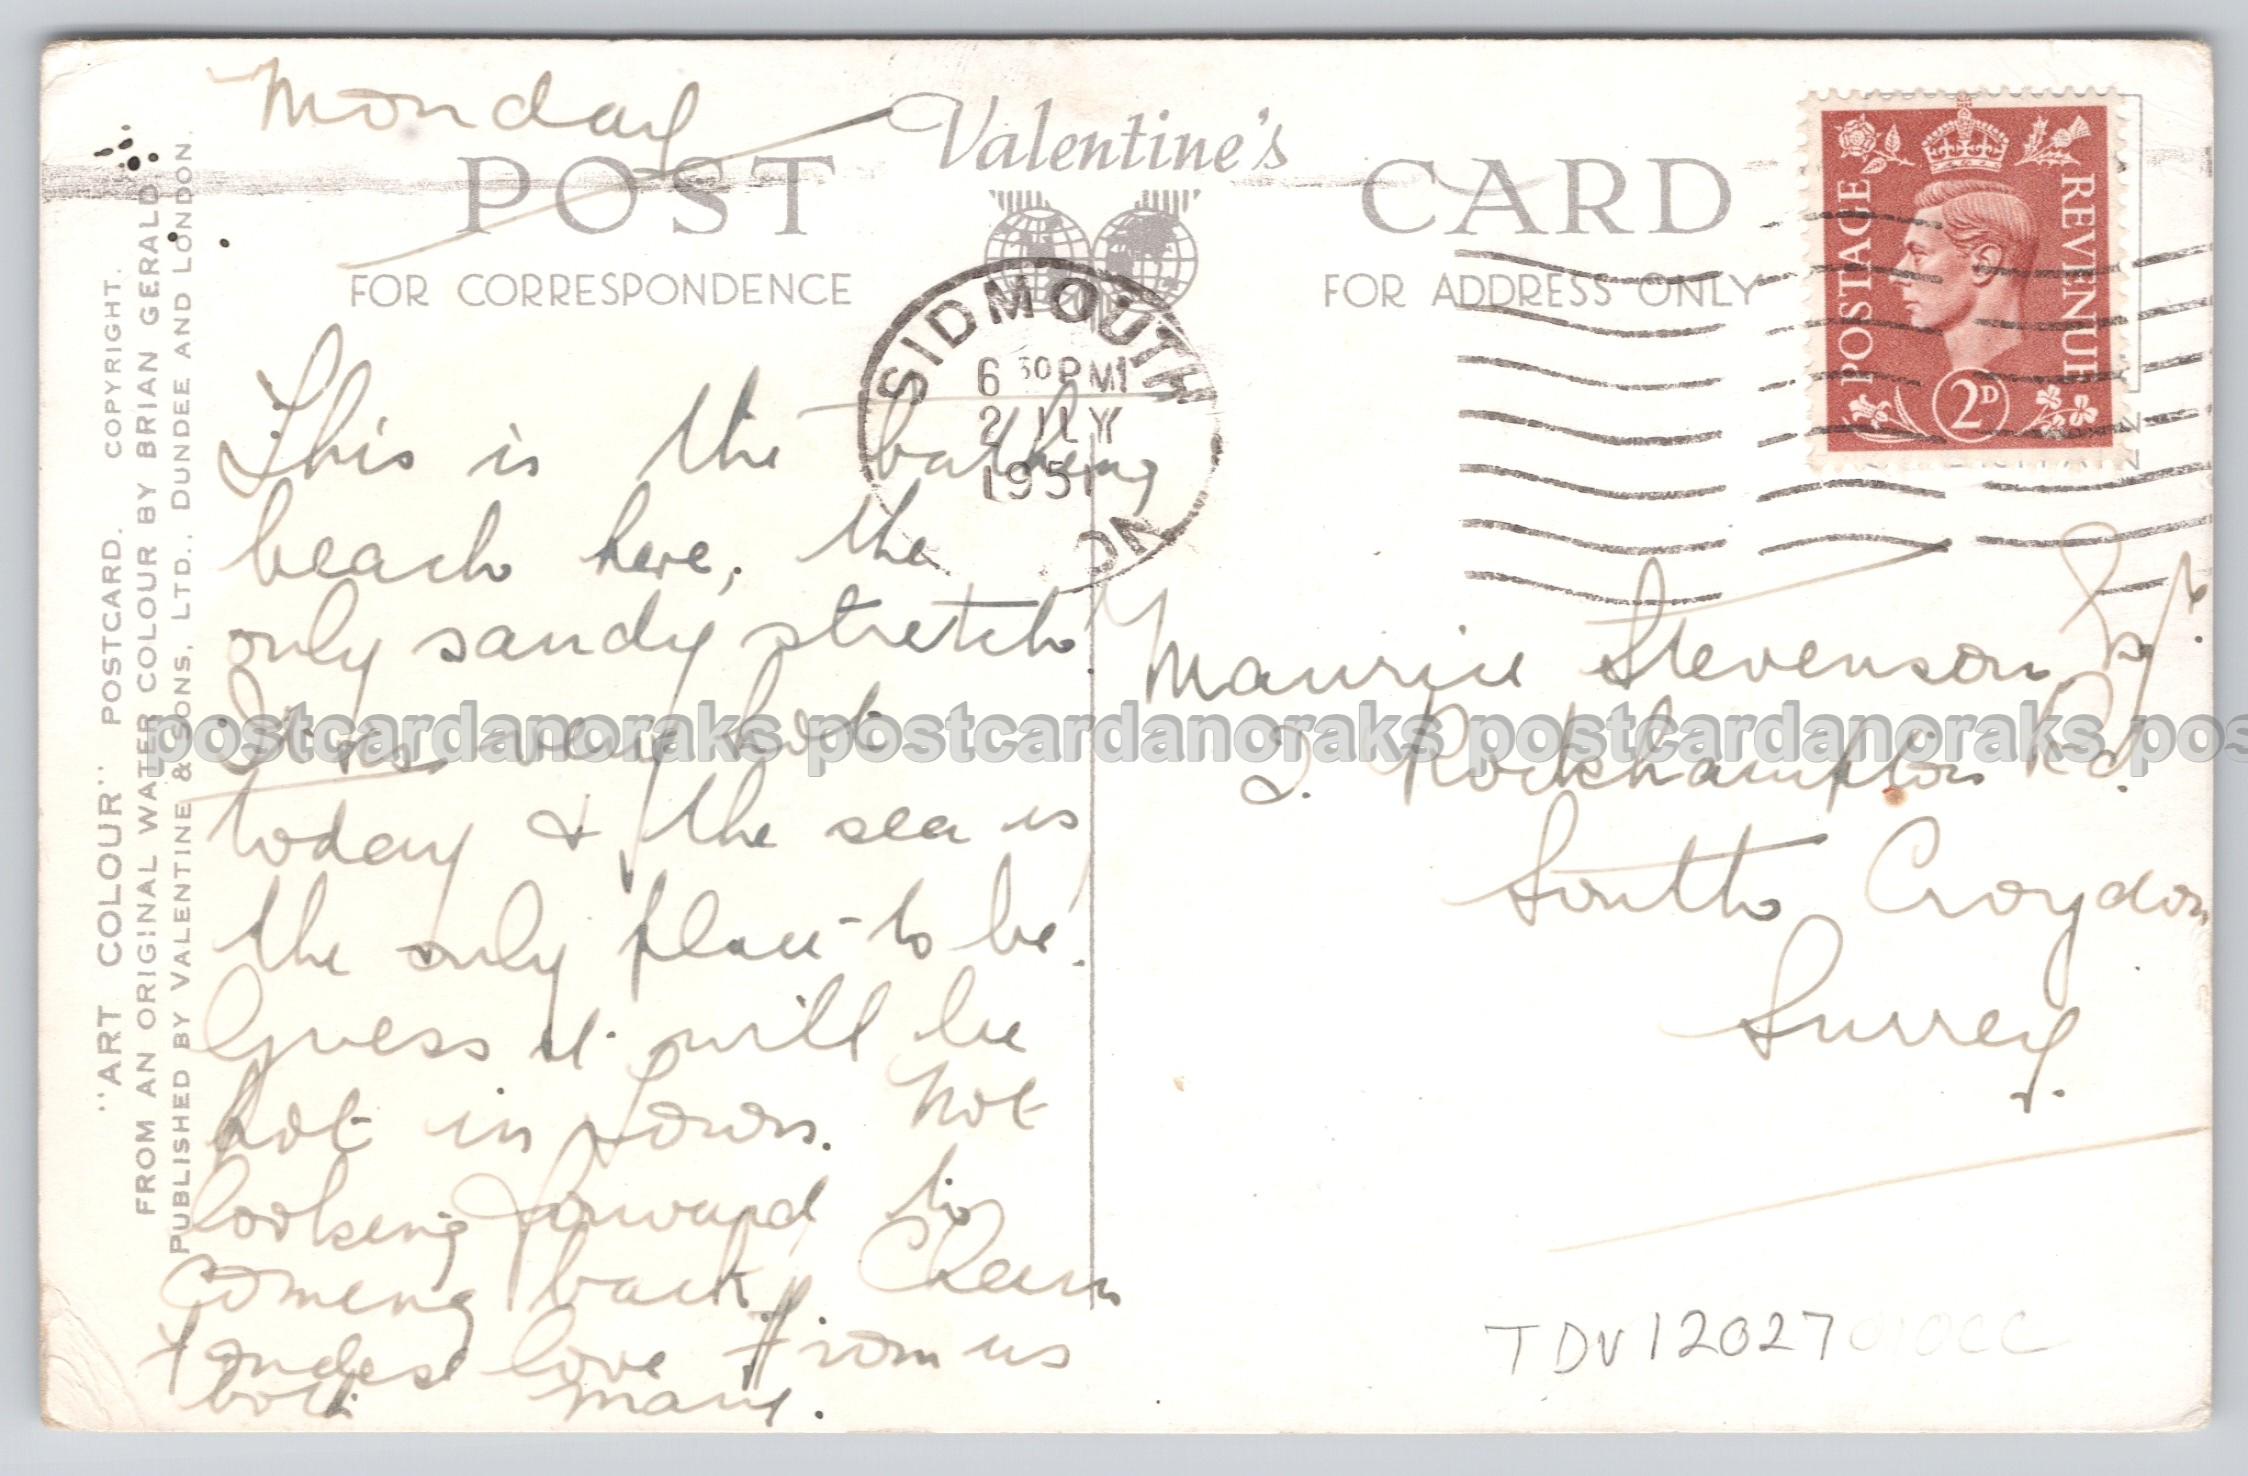 Monday
Valentine's
POST CARD
FOR CORRESPONDENCE
FOR ADDRESS ONLY
POSTAGE REVENUE
2D
SIDMOUTH
6 30 PM
2 JLY
1951
This is the bathing
beach here, the
only sandy stretch.
It is very hot
today & the sea is
the only place to be.
Guess it will be
hot in Town. Not
looking forward to
coming back. Cheers
Fondest love from us
both Mary.
Maurice Stevenson, Esq.
2. Rockhampton Rd.
South Croydon
Surrey.
"ART COLOUR" POSTCARD. COPYRIGHT.
FROM AN ORIGINAL WATER COLOUR BY BRIAN GERALD.
PUBLISHED BY VALENTINE & SONS, LTD., DUNDEE AND LONDON.
TDV12027 010CC
postcardanoraks postcardanoraks postcardanoraks pos